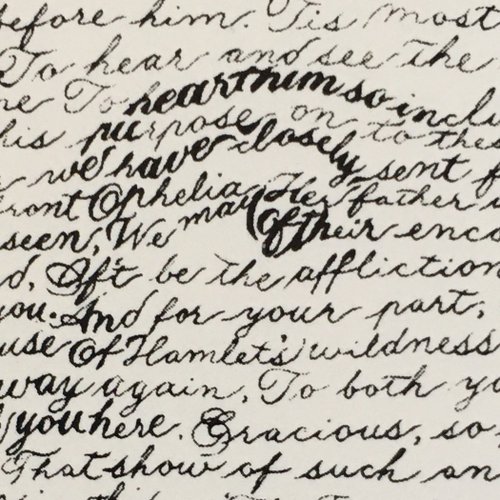 before him. 'Tis most
To hear and see the
To hear him so inclu
his purpose on to thes
we have closely sent f
front Ophelia Her father
seen, We may Of their enco
d, If't be the affliction
you. And for your part,
use Of Hamlet's wildness
way again, To both yo
you here. Gracious, so
That show of such an